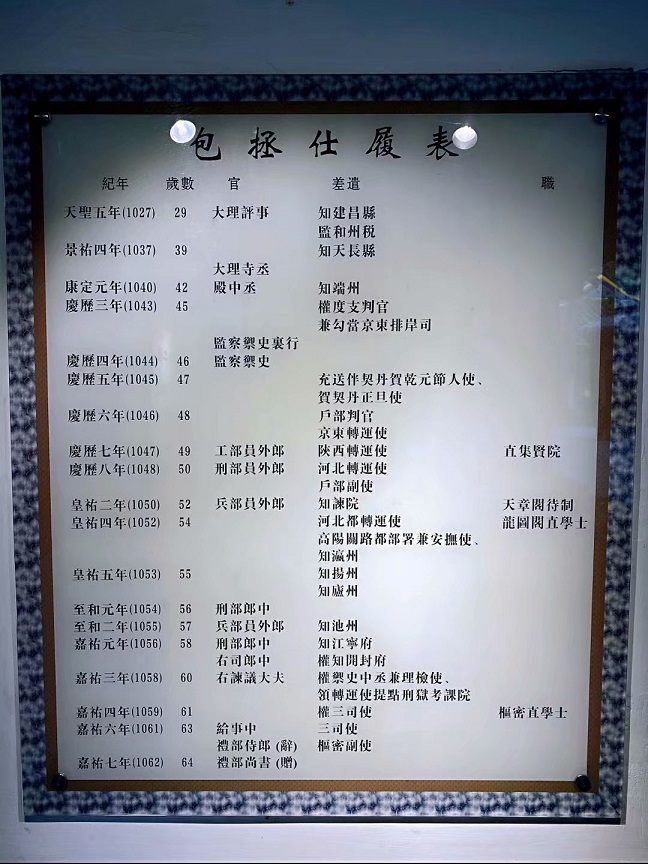 包拯仕履表
紀年 歲數 官 差遣 職
天聖五年(1027) 29 大理評事 知建昌縣
監和州税
景祐四年(1037) 39 知天長縣
大理寺丞
康定元年(1040) 42 殿中丞 知端州
慶歷三年(1043) 45 權度支判官
兼勾當京東排岸司
監察禦史裏行
慶歷四年(1044) 46 監察禦史
慶歷五年(1045) 47 充送伴契丹賀乾元節人使、
賀契丹正旦使
慶歷六年(1046) 48 戶部判官
京東轉運使
慶歷七年(1047) 49 工部員外郎 陝西轉運使 直集賢院
慶歷八年(1048) 50 刑部員外郎 河北轉運使
戶部副使
皇祐二年(1050) 52 兵部員外郎 知諫院 天章閣待制
皇祐四年(1052) 54 河北都轉運使 龍圖閣直學士
高陽關路都部署兼安撫使、
知瀛州
皇祐五年(1053) 55 知揚州
知廬州
至和元年(1054) 56 刑部郎中
至和二年(1055) 57 兵部員外郎 知池州
嘉祐元年(1056) 58 刑部郎中 知江寧府
右司郎中 權知開封府
嘉祐三年(1058) 60 右諫議大夫 權禦史中丞兼理檢使、
領轉運使提點刑獄考課院
嘉祐四年(1059) 61 權三司使 樞密直學士
嘉祐六年(1061) 63 給事中 三司使
禮部侍郎 (辭) 樞密副使
嘉祐七年(1062) 64 禮部尚書 (贈)